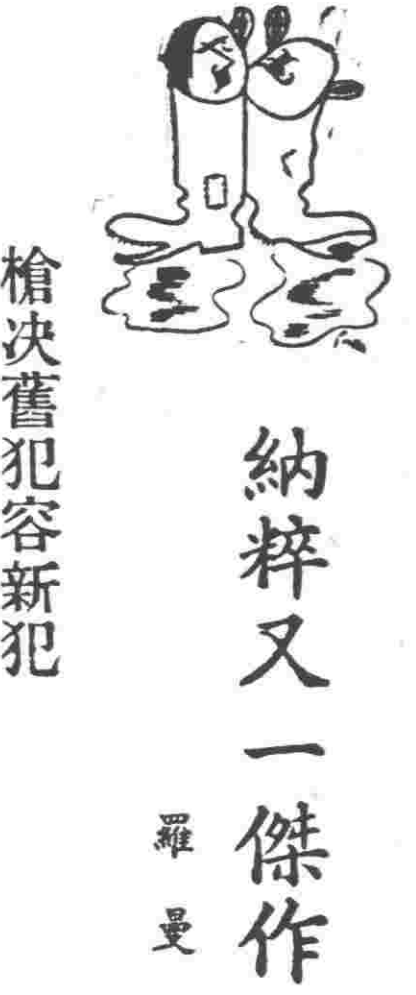 納粹又一傑作
羅曼
槍决舊犯容新犯